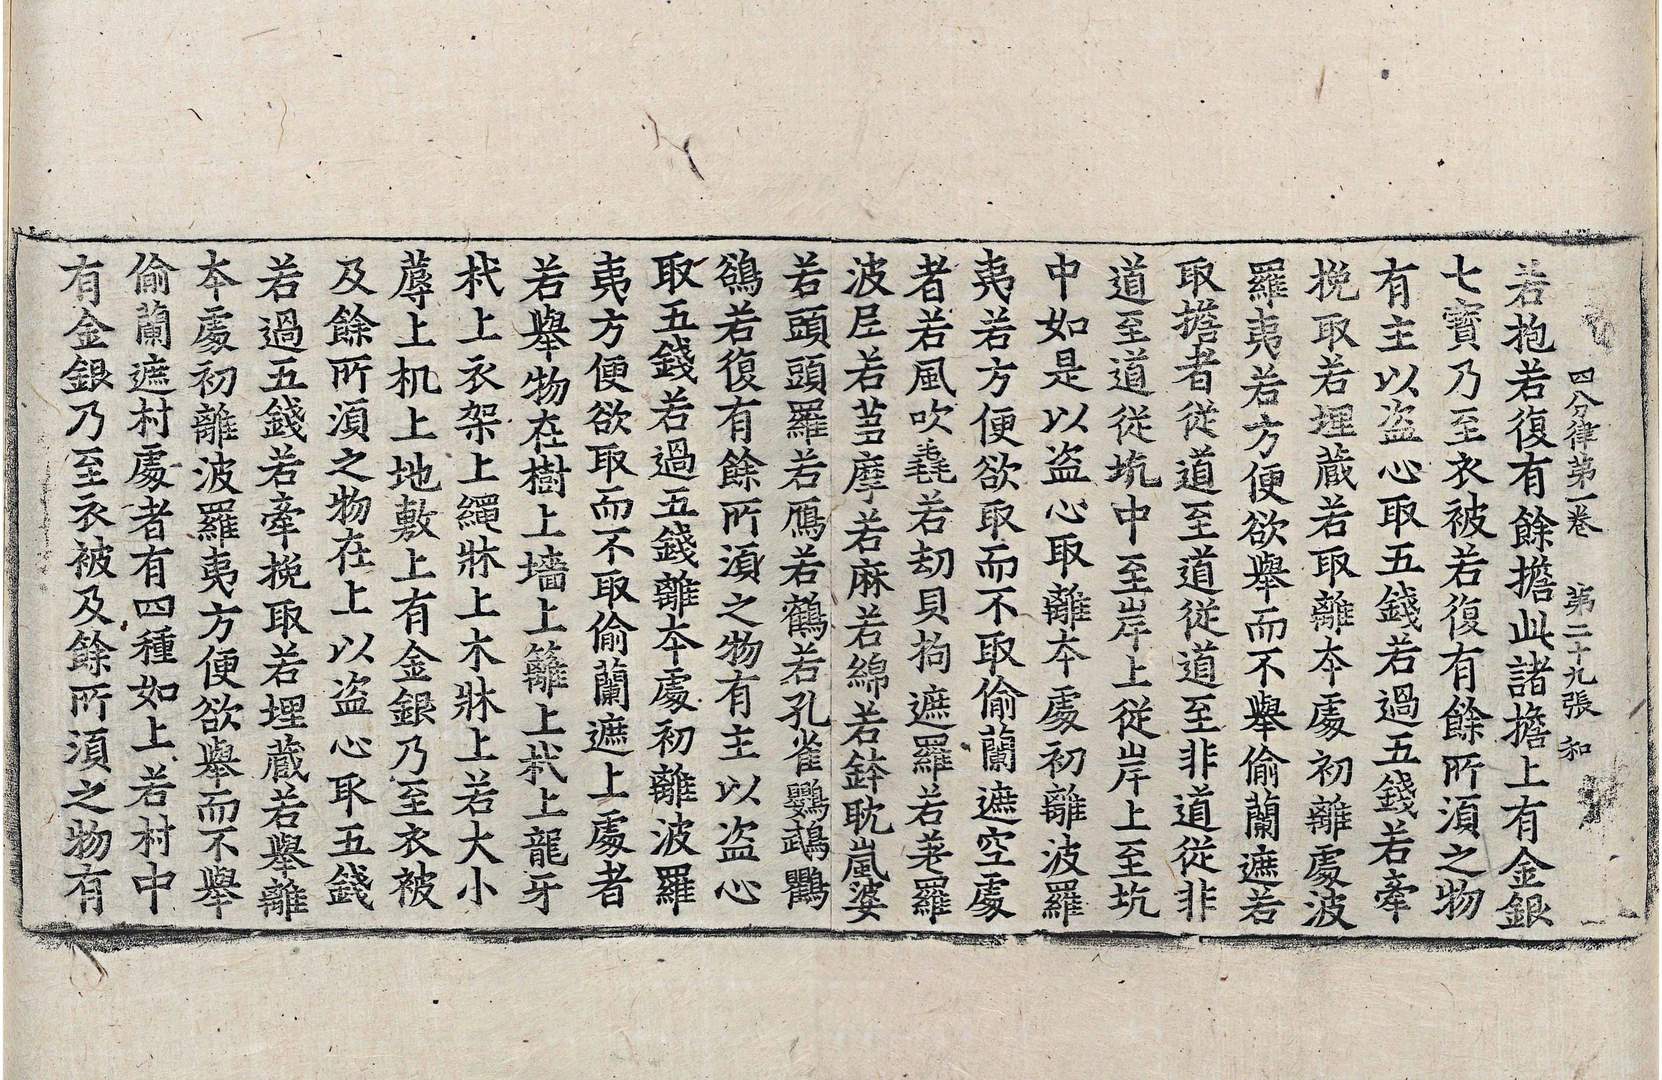 四分律第一卷　第二十九張　和
若抱若復有餘擔此諸擔上有金銀
七寶乃至衣被若復有餘所須之物
有主以盜心取五錢若過五錢若牽
挽取若埋藏若取離本處初離處波
羅夷若方便欲舉而不舉偷蘭遮若
取擔者從道至道從道至非道從非
道至道從坑中至岸上從岸上至坑
中如是以盜心取離本處初離波羅
夷若方便欲取而不取偷蘭遮空處
者若風吹毳若劫貝拘遮羅若差羅
波尼若芻摩若麻若綿若鉢耽嵐婆
若頭頭羅若鴈若鶴若孔雀鸚鵡鸜
鵒若復有餘所須之物有主以盜心
取五錢若過五錢離本處初離波羅
夷方便欲取而不取偷蘭遮上處者
若舉物在樹上墻上籬上杙上龍牙
杙上衣架上繩牀上木牀上若大小
蓐上机上地敷上有金銀乃至衣被
及餘所須之物在上以盜心取五錢
若過五錢若牽挽取若埋藏若舉離
本處初離波羅夷方便欲舉而不舉
偷蘭遮村處者有四種如上若村中
有金銀乃至衣被及餘所須之物有